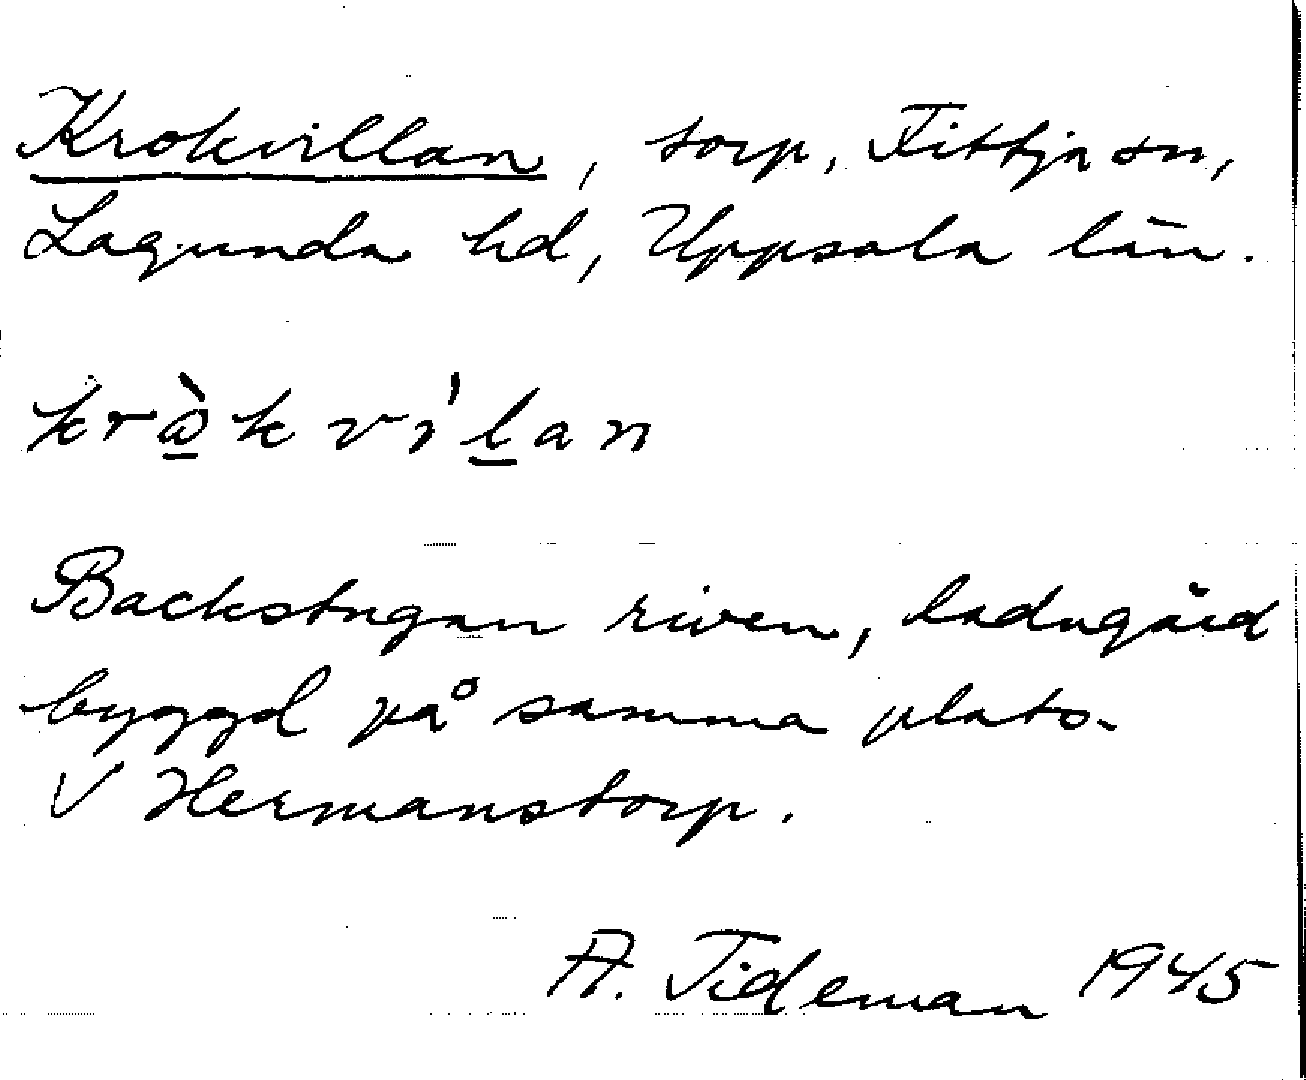 Krokvillan, torp, Fittja sn,
Lagunda hd, Uppsala län.
krὼ̲kvi'l̲an
Backstugan riven, ladugård
byggd på samma plats.
V Hermanstorp.
A. Tideman 1945